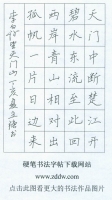 天门中断楚江开
碧水东流至此回
两岸青山相对出
孤帆一片日边来
李白诗望天门山
硬笔书法字帖下载网站
www.zddw.com
点击此图看更大的书法作品图片